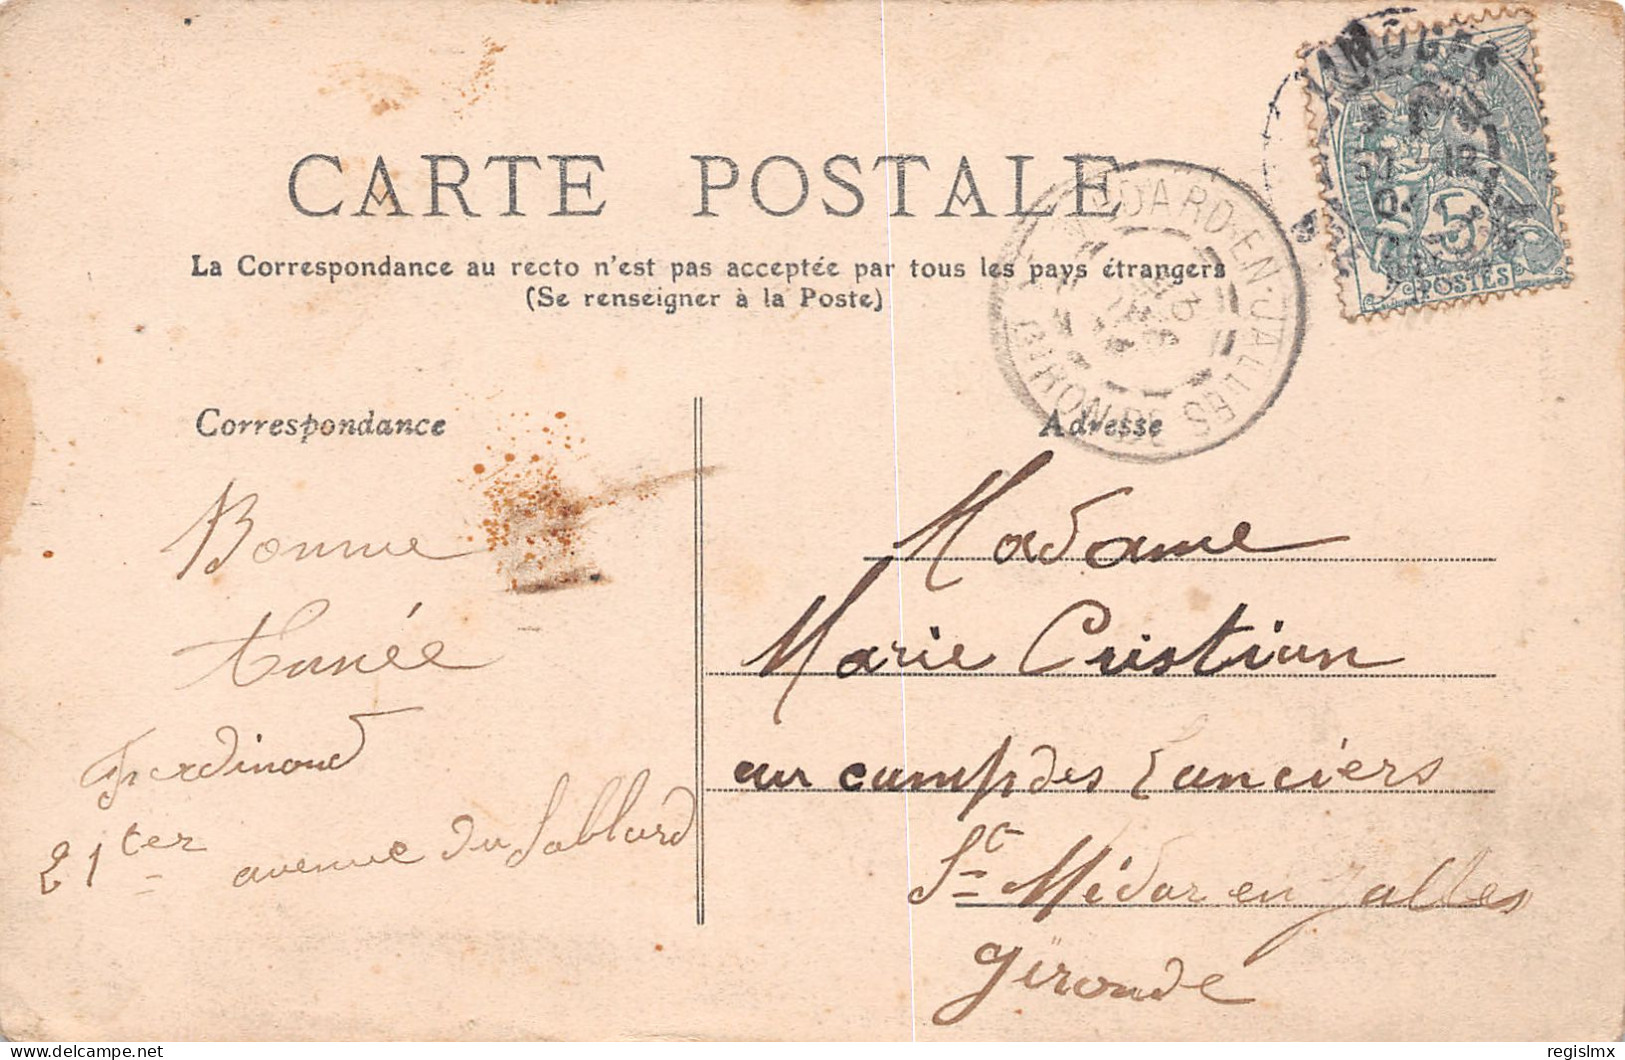 CARTE POSTALE
La Correspondance au recto n'est pas acceptée par tous les pays étrangers
(Se renseigner à la Poste)
LIMOGES
5
POSTES
EN-JALLES
GIRONDE
Correspondance
Bonne
Année
Ferdinand
21 ter avenue du Sablard
Adresse
Madame
Marie Cristian
au camp des Lanciers
St Médar en Jalles
Gironde
regislmx
delcampe.net